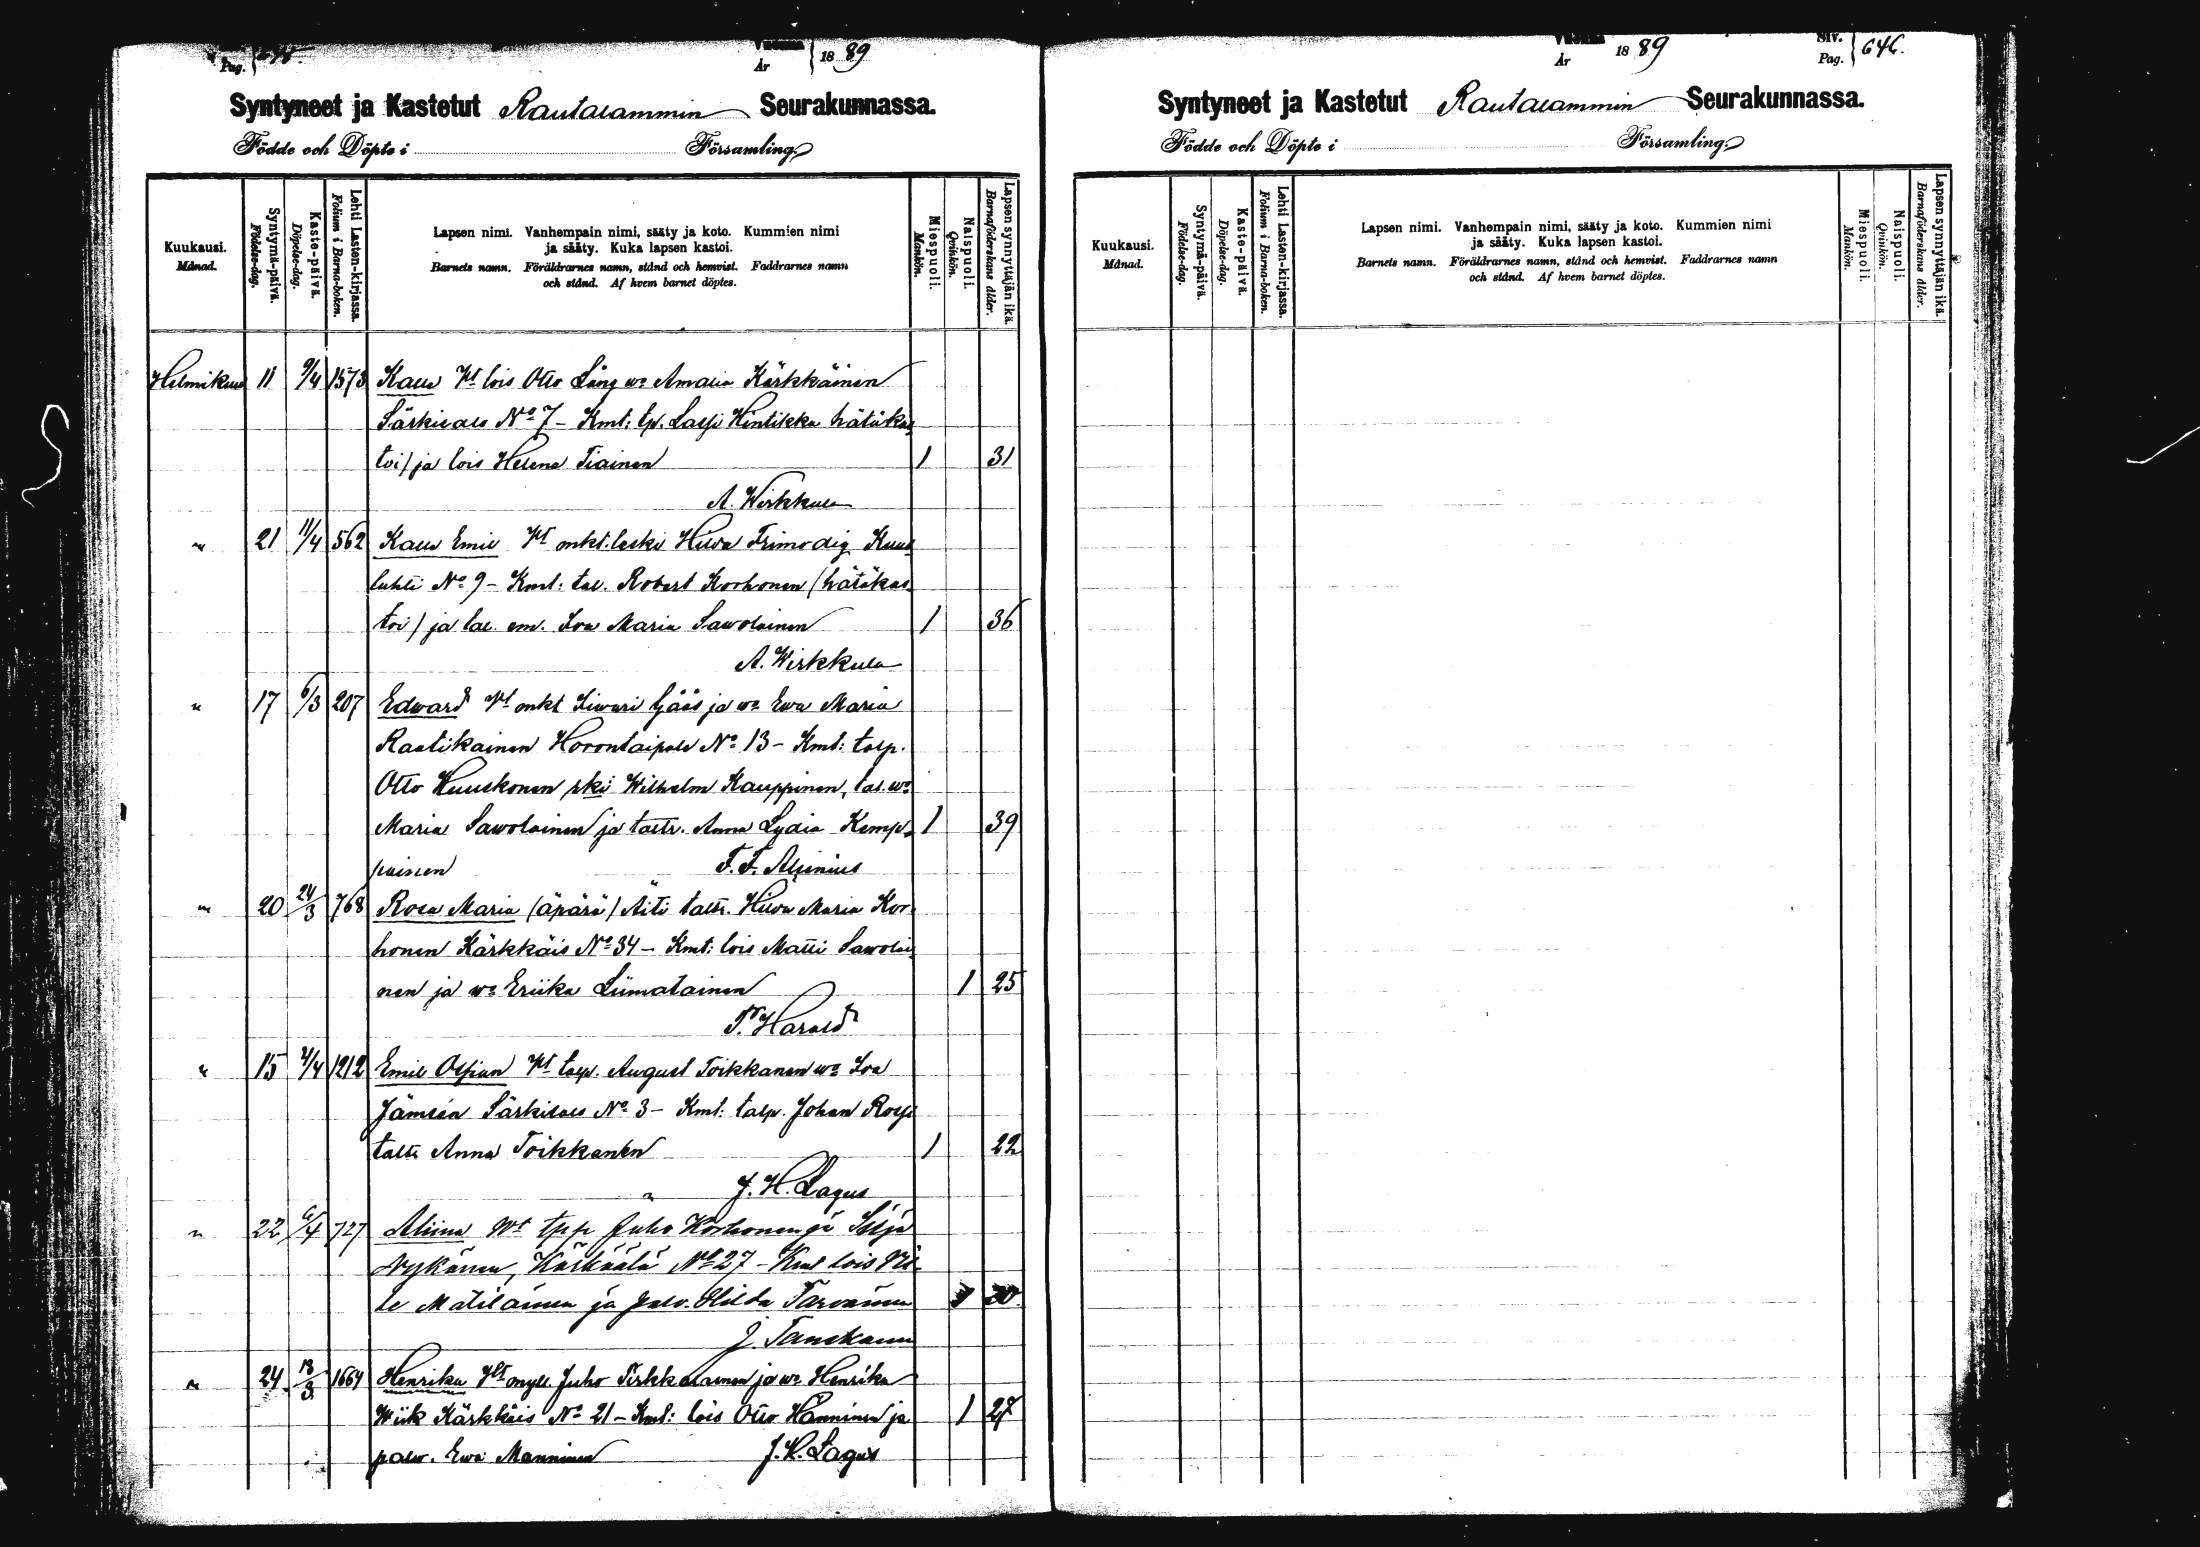 Pag.
År 1889
Syntyneet ja Kastetut Rautalammin Seurakunnassa.
Födde och Döpte i Församling
Kuukausi.
Månad.
Syntymä-päivä.
Födelse-dag.
Kaste-päivä.
Döpelse-dag.
Lehti Lasten-kirjassa.
Folium i Barna-boken.
Lapsen nimi. Vanhempain nimi, sääty ja koto. Kummien nimi
ja sääty. Kuka lapsen kastoi.
Barnets namn. Föräldrarnes namn, stånd och hemvist. Faddrarnes namn
och stånd. Af hvem barnet döptes.
Miespuoli.
Mankön.
Naispuoli.
Qvinkön.
Lapsen synnyttäjän ikä.
Barnaföderskans ålder.
Helmikuu 11 9/4 1573 Kalle Wt lois Otto Lång wo Amalia Kärkkäinen
Särkisalo No 7 - Kmt: tp. Lassi Hintikka hätäkas
toi) ja lois Helena Tiainen 1 31
A. Wirkkula
" 21 11/4 562 Kalle Emil Wt onkt. leski Hilda Frimodig Kuus
lahti No 9 - Kmt: tal. Robert Korhonen (hätäkas
toi) ja tal. em. Loa Maria Sawolainen 1 36
A. Wirkkula
" 17 6/3 207 Edward Wt onkt Siwari Gåås ja wo Ewa Maria
Raatikainen Horontaipale No 13 - Kmt: talp.
Otto Huuskonen rki Wilhelm Kauppinen, tal. wo
Maria Sawolainen ja taltr. Anna Lydia Kemp 1 39
painen F. F. Alenius
" 20 24/3 768 Rosa Maria (äpärä) Äiti taltr. Hilda Maria Kor
honen Kärkkäis No 34 - Kmt: lois Matti Sawolai
nen ja wo Eriika Liimatainen 1 25
T. Harald
" 15 4/4 1212 Emil Olfian Wt talp. August Toikkanen wo Loa
Jämsén Särkisalo No 3 - Kmt: talp. Johan Rossi
taltr Anna Toikkanen 1 22
" J. H. Lagus
" 22 6/4 727 Aliina Wt tpp Juho Korhonen ja Seija
Nykänen, Kärkäälä No 27 - Kmt lois Vil
le Matilainen ja palv. Hilda Tarvainen 1 30
J. Tanskanen
" 24 13/3 1664 Henrika Wt myll. Juho Pirkkalainen ja wo Henrika
Wiik Kärkkäis No 21 - Kmt: lois Otto Hänninen ja 1 27
palw. Ewa Manninen J. H. Lagus
År 1889
Siv.
Pag. 646.
Syntyneet ja Kastetut Rautalammin Seurakunnassa.
Födde och Döpte i Församling
Kuukausi.
Månad.
Syntymä-päivä.
Födelse-dag.
Kaste-päivä.
Döpelse-dag.
Lehti Lasten-kirjassa.
Folium i Barna-boken.
Lapsen nimi. Vanhempain nimi, sääty ja koto. Kummien nimi
ja sääty. Kuka lapsen kastoi.
Barnets namn. Föräldrarnes namn, stånd och hemvist. Faddrarnes namn
och stånd. Af hvem barnet döptes.
Miespuoli.
Mankön.
Naispuoli.
Qvinkön.
Lapsen synnyttäjän ikä.
Barnaföderskans ålder.